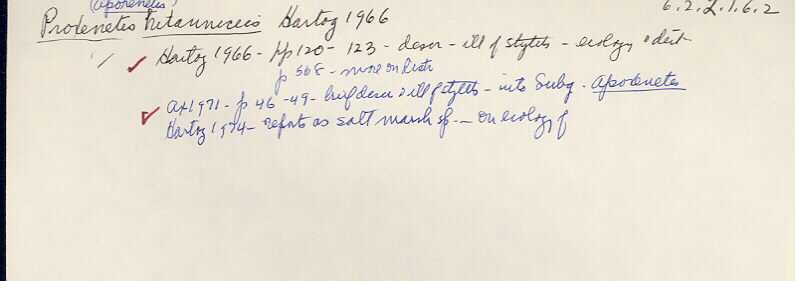 (Aporenetes)
6.2.2.1.6.2
Proxenetes britannicus Hartog 1966
Hartog 1966 - pp 120 - 123 - descr - ill of stylets - ecology & distr
p 568 - more on distr
Ax 1971 - p 46 - 49 - brief descr & ill of stylets - into Subg.
Hartog 1974 - reports as salt marsh sp. - on ecology of